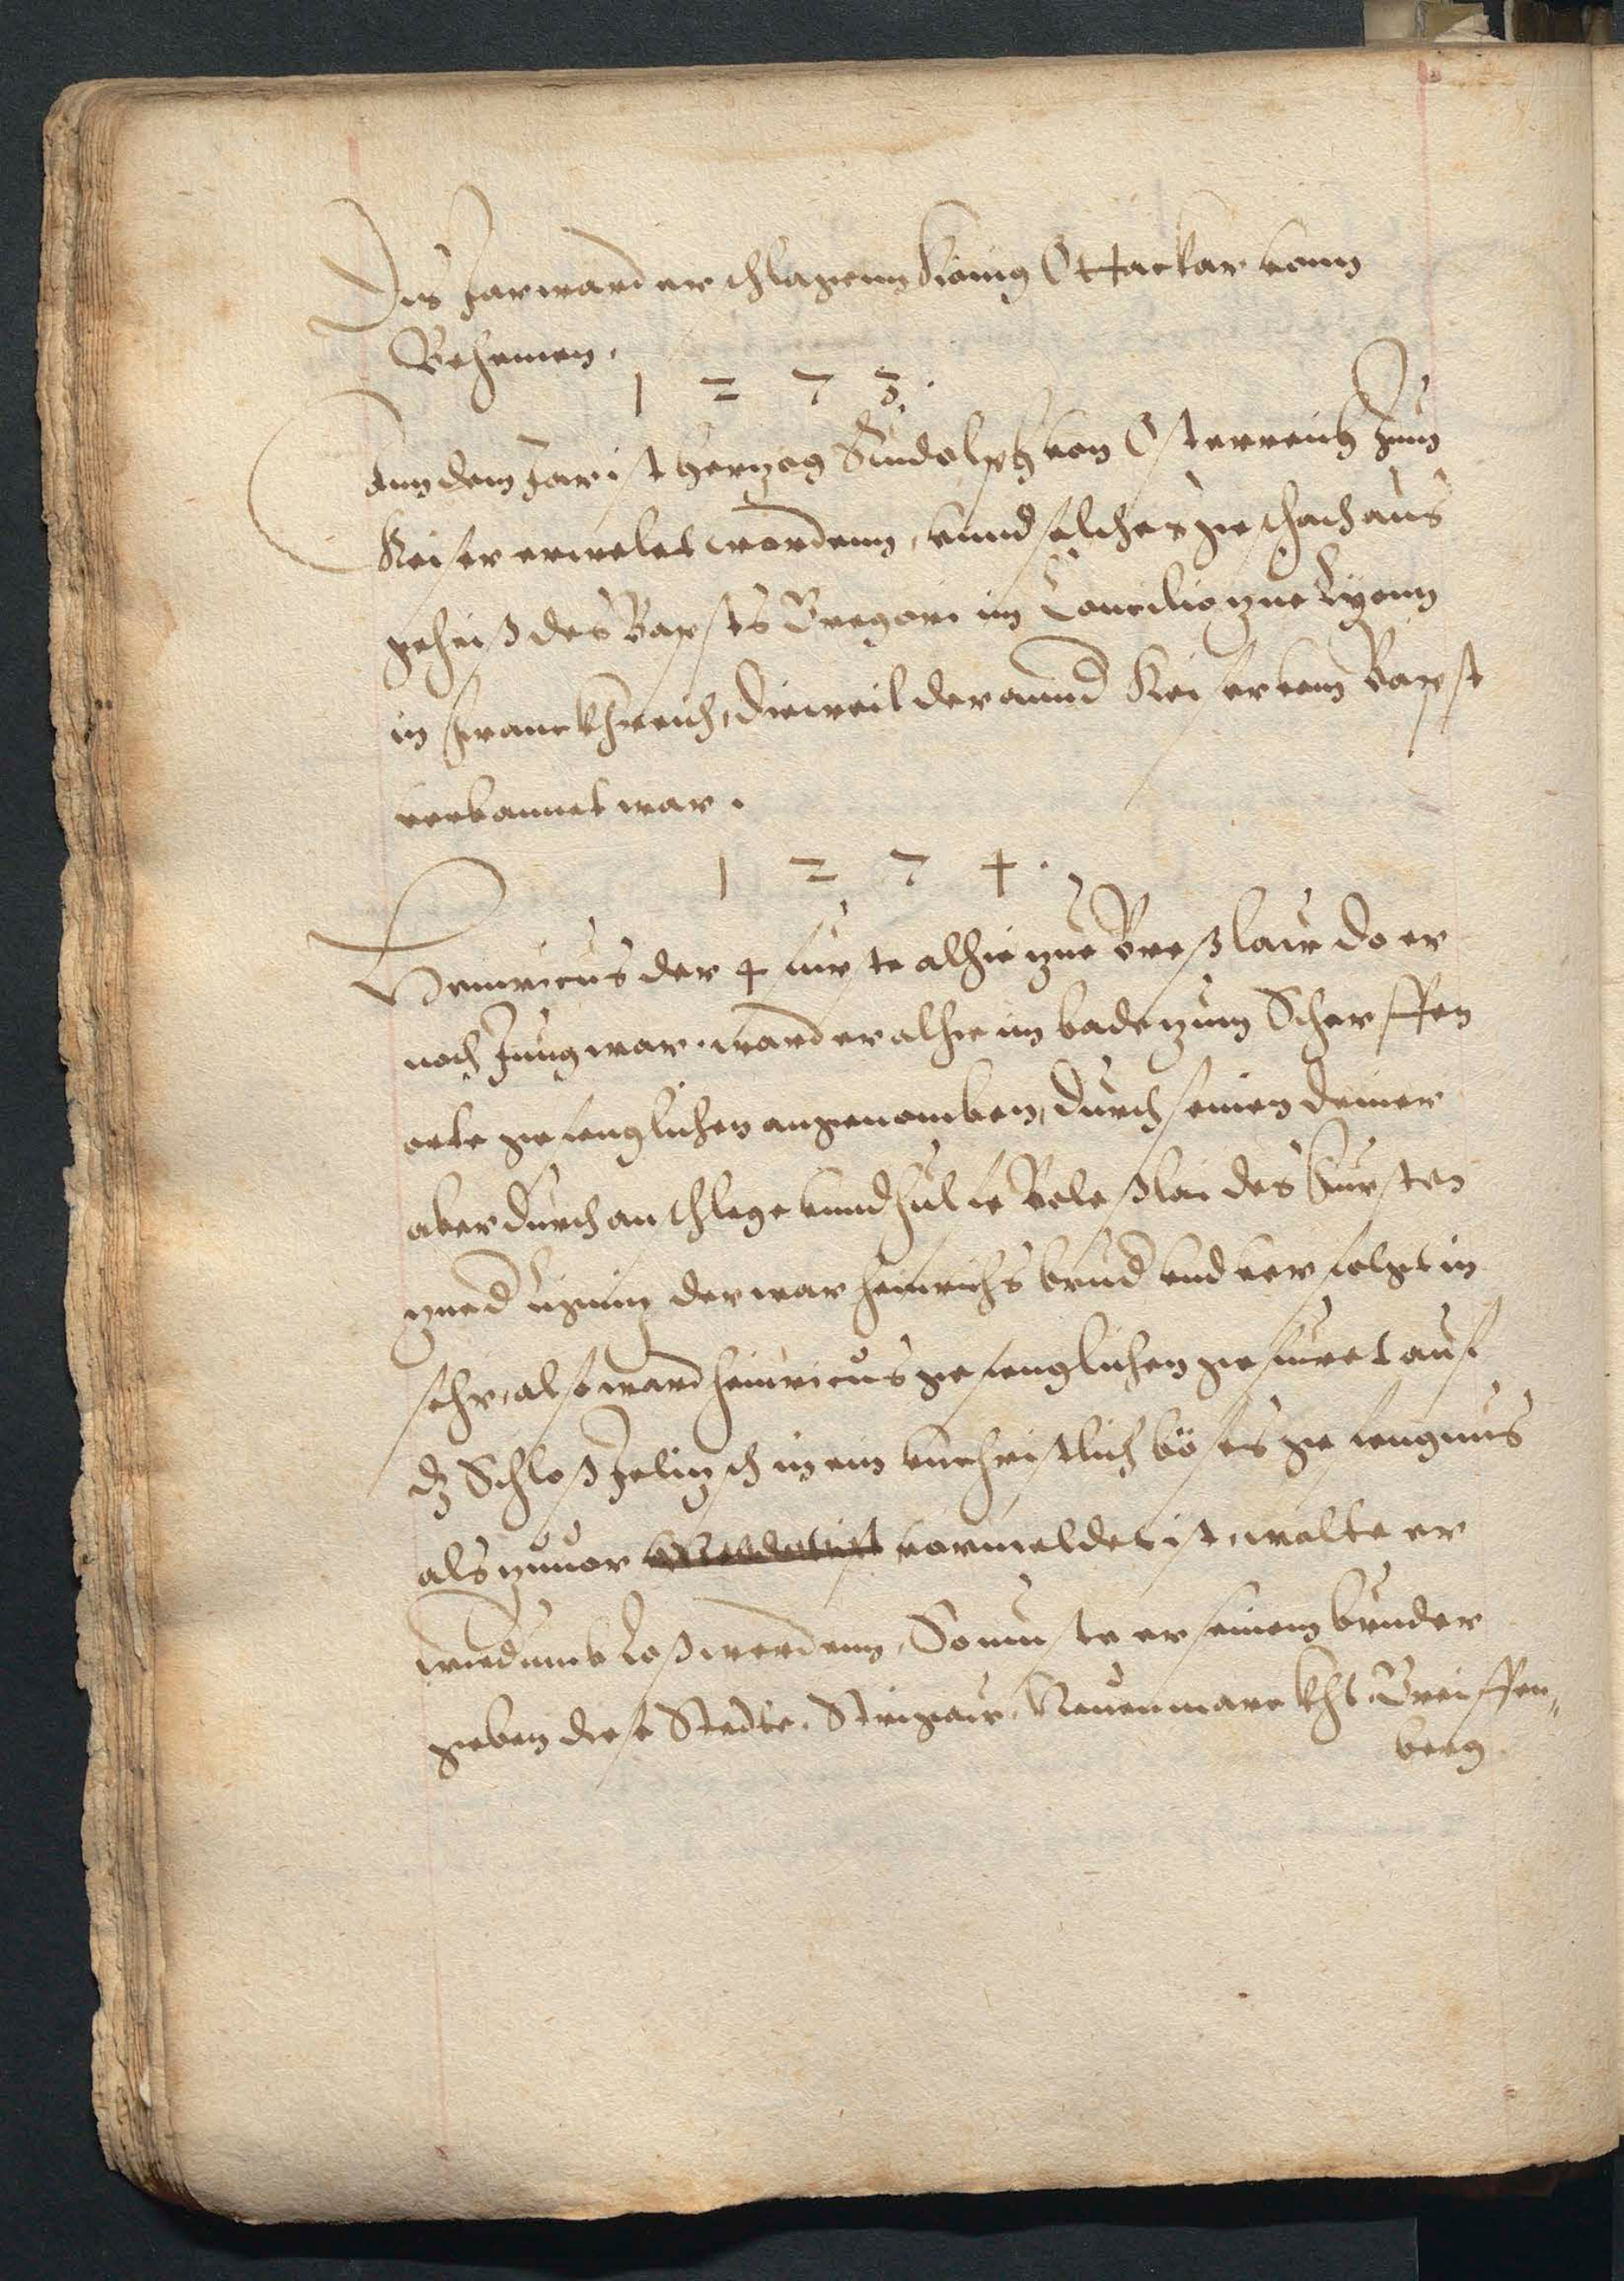 Dis Jar ward erschlagenn König Ottackar vonn
Behemen.
1 2 7 3.
Ann dem Jar ist Hertzog Rudolph von Osterreich zum
Keiser erwelet wordenn, vnnd solches geschach aus
geheiß des Bapsts Gregori im Concilio zue Lyonn
in Franckhreich, dieweil der annd Keiser vom Bapst
verbannet war.
1 2 7 4.
Henricus der 4 furste alhie zue Breßlaw do er
noch Jung war. ward er alhie im bade zum Scherffen
orte gefenglichen angenomben, durch seinen deiner
aber durch anschlege vnnd hulfe Boleßlai des Fursten
zue der Ligenitz der war heinrichs brud vnd verfolget in
sehr, also ward heinricus gefenglichen gefuret auf
dz Schloß Jeltzsch in ein vnchristlich böses gefengnus
als zuuor vormeldet ist, wolte er
wiedumb Loß werdenn, So muste er seinem bruder
geben diese Stedte. Strigaw. Neuenmarckht. Greiffen„
berg